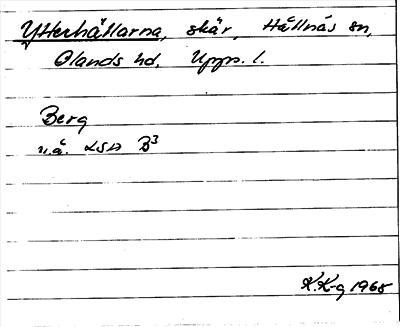 Ytterhällarna, skär, Hållnäs sn,
Olands hd, Upps. l.
Berg
u.å. LSA B3
K.K-g 1965